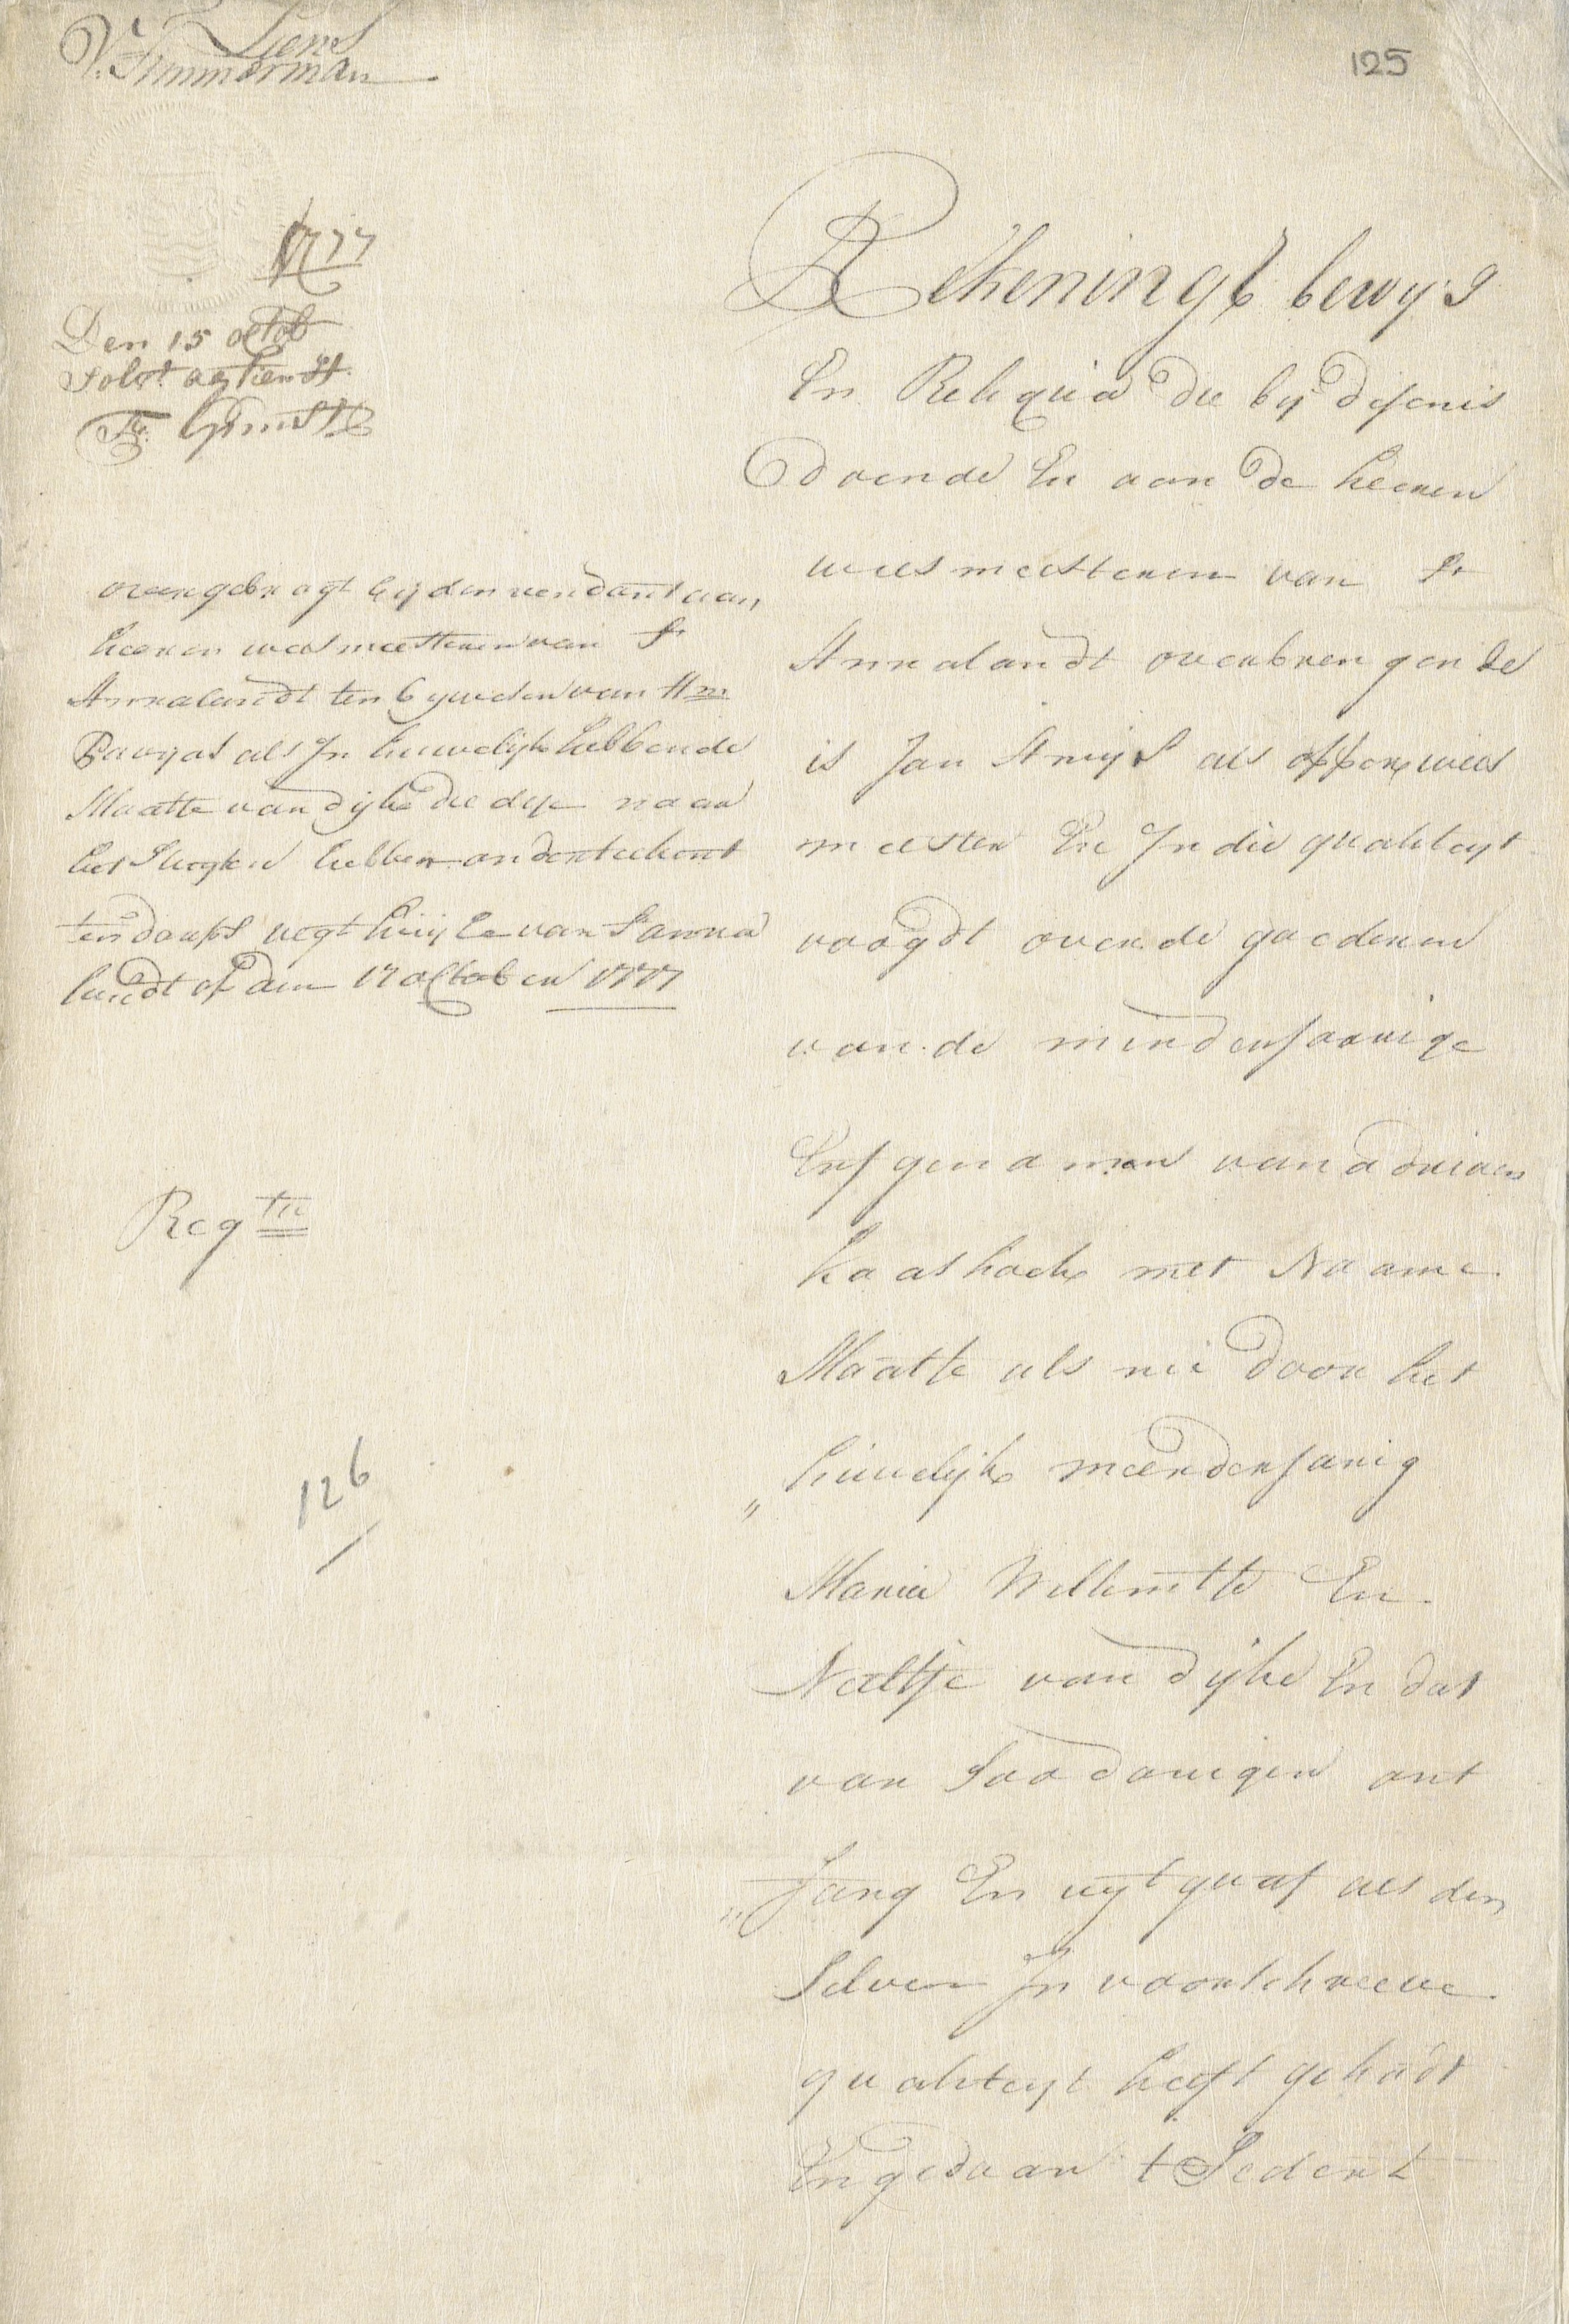 Liens
V: Timmerman
125
1777
Den 15 octob
Solvt agtien St.
Rekening bewys
En Reliqua die bij desenis
doende En aan de heeren
weesmeesteren van St
Annalandt overbrengende
is Jan Knuijt als opper wees
meester En In die qualiteyt
voogdt over de goederen
van de minderjaarige
Erfgenamen van adriaen
Kaashoek met Naame
Maatte als nu door het
„ huwelijk meerderjarig
Maria Willemtte En
Neeltje van dijke En dat
van Soodanigen ont
„ fang En uytgaaf als den
Selven In voorschreeve
qualiteyt heeft gehadt
En gedaan t Sedert
overgebragt bij den rendant aan
heeren weesmeesteren van St
Annalandt ten bywesen van
als In huwelijk hebbende
Maatte van dijke die dese naar
het sluyten hebben onderteekent
ten raed huijse van St anna
landt op den 17 october 1777
Reg te
126